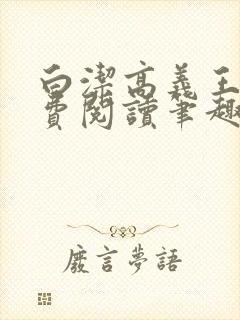 白潔高義王
費閱讀筆趣
廢言夢語